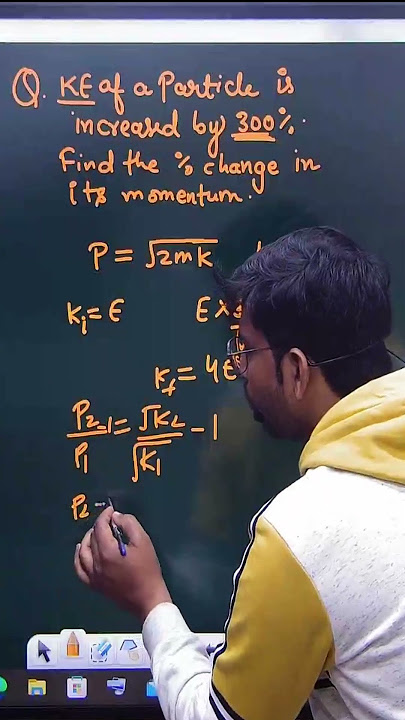 Q. KE of a Particle is
increased by 300%.
Find the % change in
its momentum.
P = √2mK
Ki = E E ×
Kf = 4E
P2/P1 - 1 = √K2/√K1 - 1
P2 -